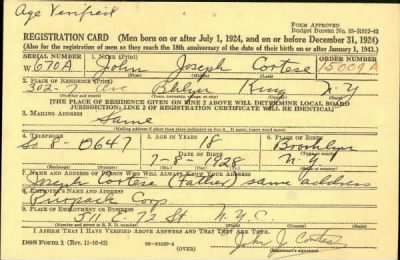 Age Verified
FORM APPROVED
Budget Bureau No. 33-R012-43
REGISTRATION CARD—(Men born on or after July 1, 1924, and on or before December 31, 1924)
(Also for the registration of men as they reach the 18th anniversary of the date of their birth on or after January 1, 1943.)
SERIAL NUMBER 1. NAME (Print) ORDER NUMBER
W 670A John Joseph Cortese 15009A
(First) (Middle) (Last)
2. PLACE OF RESIDENCE (Print)
302-7 Ave Bklyn King N-Y
[THE PLACE OF RESIDENCE GIVEN ON LINE 2 ABOVE WILL DETERMINE LOCAL BOARD
JURISDICTION; LINE 2 OF REGISTRATION CERTIFICATE WILL BE IDENTICAL]
3. MAILING ADDRESS
Same
4. TELEPHONE 5. AGE IN YEARS 6. PLACE OF BIRTH
So 8-0647 18 Brooklyn
DATE OF BIRTH
7-8-1928 N.Y.
7. NAME AND ADDRESS OF PERSON WHO WILL ALWAYS KNOW YOUR ADDRESS
Joseph Cortese (Father) same address
8. EMPLOYER'S NAME AND ADDRESS
Purepack Corp.
9. PLACE OF EMPLOYMENT OR BUSINESS
511 E. 72 St N.Y.C.
I AFFIRM THAT I HAVE VERIFIED ABOVE ANSWERS AND THAT THEY ARE TRUE.
DSS Form 1 (Rev. 11-16-42) (OVER) John J Cortese